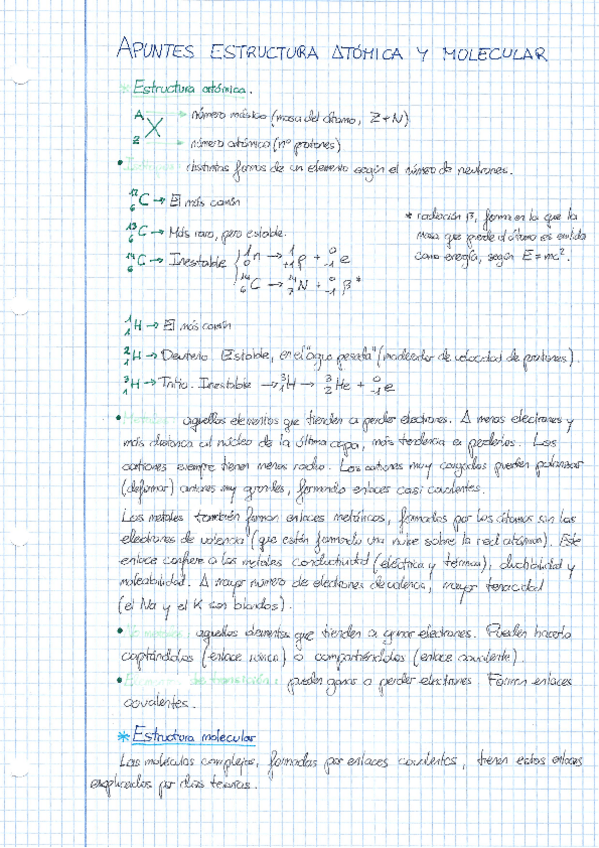 APUNTES ESTRUCTURA ATÓMICA Y MOLECULAR
* Estructura atómica.
A → número másico (masa del átomo, Z+N)
X
Z → número atómico (nº protones)
• Isótopos: distintas formas de un elemento según el número de neutrones.
¹²₆C → El más común
¹³₆C → Más raro, pero estable.
¹⁴₆C → Inestable { ¹₀n → ¹₊₁p + ⁰₋₁e
¹⁴₆C → ¹⁴₇N + ⁰₋₁β*
* radiación β, forma en la que la
masa que pierde el átomo es emitida
como energía, según E=mc².
¹₁H → El más común
²₁H → Deuterio. Estable, en el "agua pesada" (moderador de velocidad de).
³₁H → Tritio. Inestable → ³₁H → ³₂He + ⁰₋₁e
• Metales: aquellos elementos que tienden a perder electrones. A menos electrones y
más distancia al núcleo de la última capa, más tendencia a perderlos. Los
cationes siempre tienen menos radio. Los cationes muy cargados pueden polarizar
(deformar) aniones muy grandes, formando enlaces casi covalentes.
Los metales también forman enlaces metálicos, formados por los átomos sin los
electrones de valencia (que están formando una nube sobre la red atómica). Este
enlace confiere a los metales conductividad (eléctrica y térmica), ductibilidad y
maleabilidad. A mayor número de electrones de valencia, mayor tenacidad
(el Na y el K son blandos).
• No metales: aquellos elementos que tienden a ganar electrones. Pueden hacerlo
captándolos (enlace iónico) o compartiéndolos (enlace covalente).
• de transición: pueden ganar o perder electrones. Forman enlaces
covalentes.
* Estructura molecular
Las moléculas complejas, formadas por enlaces covalentes, tienen estos enlaces
explicados por dos teorías.